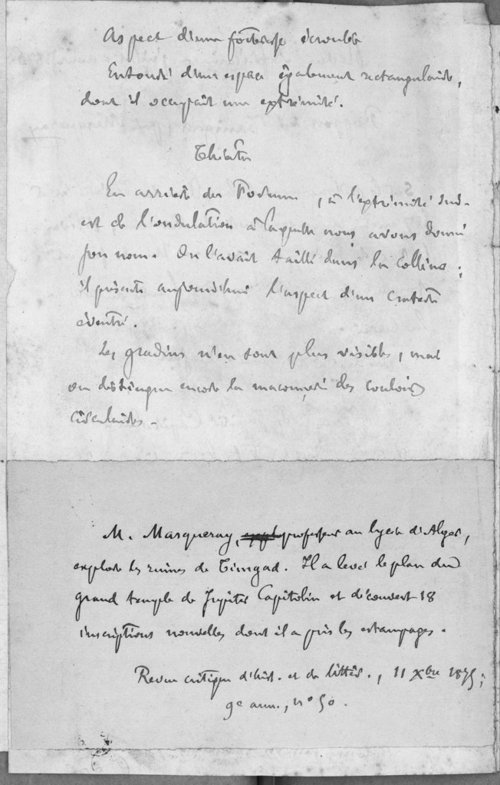 Aspect d'une forteresse écroulée
Entouré d'un espace également rectangulaire,
dont il occupait une extrémité.
Théâtre
En arrière du Forum, à l'extrémité Sud-
est de l'ondulation à laquelle nous avons donné
son nom. On l'avait taillé dans la colline ;
il présente aujourd'hui l'aspect d'un cratère
éventré.
Les gradins n'en sont plus visibles, mais
on distingue encore la maçonnerie des couloirs
circulaires.
M. Masqueray, professeur au lycée d'Alger,
explore les ruines de Timgad. Il a levé le plan du
grand temple de Jupiter Capitolin et découvert 18
inscriptions nouvelles dont il a pris les estampages.
Revue critique d'hist. et de littér., 11 Xbre 1875 ;
9e ann., n° 50.